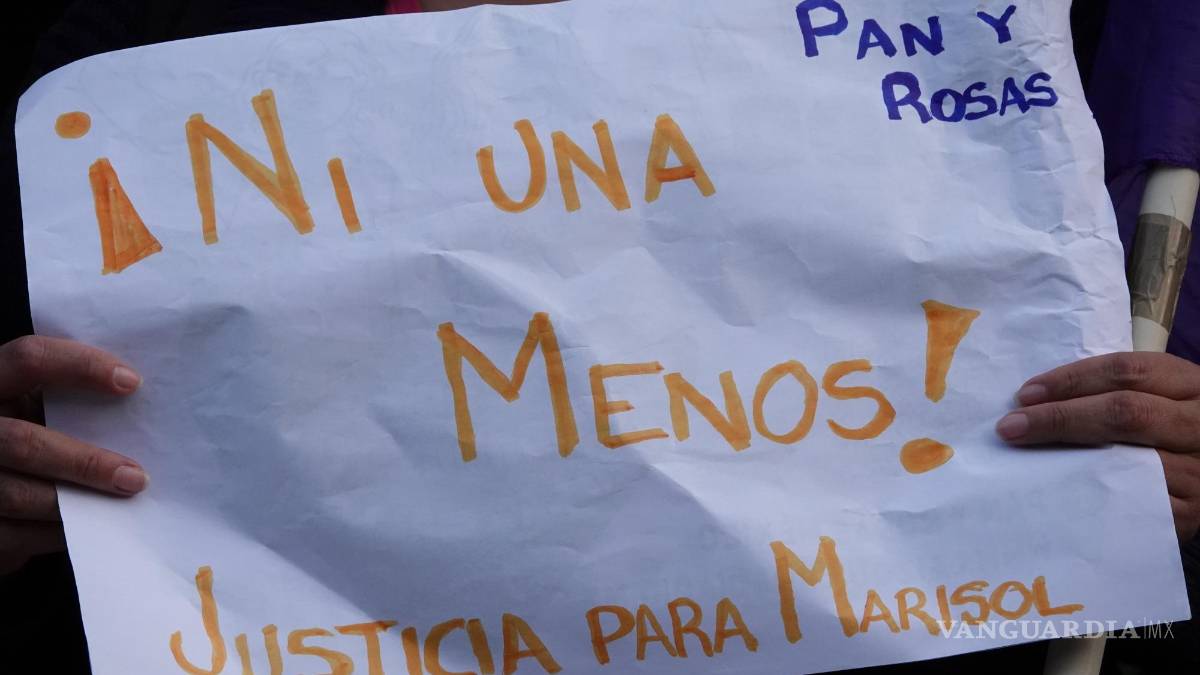 PAN Y
ROSAS
¡NI UNA
MENOS!
JUSTICIA PARA MARISOL
VANGUARDIA|MX